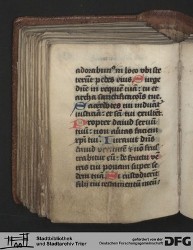 adorabimꝰ in loco vbi ste
terunt pedes eius. Surge
dn̄e in requiem tuā: tu et
archa sanctificatiōis tue.
Sacerdotes tui induāt
iusticiā: et sc̄i tui exultēt.
Propter dauid seruū
tuū: non auertas faciem
xp̄i tui. Iurauit dn̄s
dauid veritatē et nō frus
trabitur eū: de fructu vē
tris tui ponam super se
dem tuā. Si custodierīt
filij tui testamentū meū:
Stadtbibliothek
und Stadtarchiv Trier
gefördert von der
Deutschen Forschungsgemeinschaft
DFG